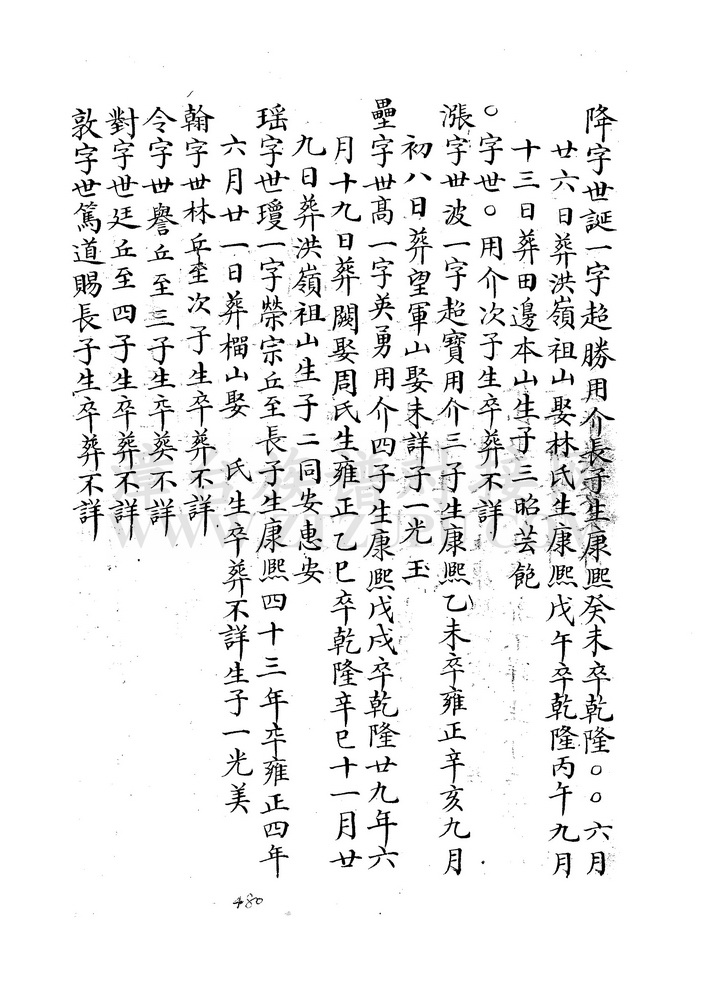 降字世誕一字超勝用介長子生康熙癸未卒乾隆○○六月
廿六日葬洪嶺祖山娶林氏生康熙戊午卒乾隆丙午九月
十三日葬田邊本山生子三昭芸飽
○字世○用介次子生卒葬不詳
漲字世波一字超寶用介三子生康熙乙未卒雍正辛亥九月
初八日葬望軍山娶未詳子一光玉
壘字世高一字英勇用介四子生康熙戊戌卒乾隆廿九年六
月十九日葬闕娶周氏生雍正乙巳卒乾隆辛巳十一月廿
九日葬洪嶺祖山生子二同安惠安
瑶字世瓊一字榮宗丘至長子生康熙四十三年卒雍正四年
六月廿一日葬榴山娶　氏生卒葬不詳生子一光美
翰字世林丘至次子生卒葬不詳
令字世譽丘至三子生卒葬不詳
對字世廷丘至四子生卒葬不詳
敦字世篤道賜長子生卒葬不詳
480